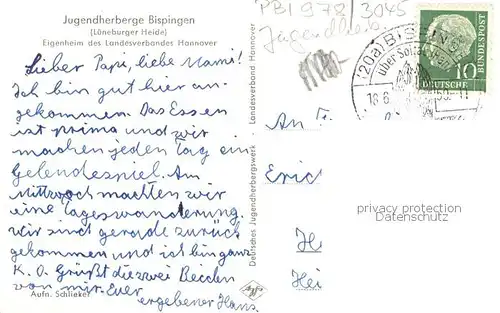 Jugendherberge Bispingen
(Lüneburger Heide)
Eigenheim des Landesverbandes Hannover
Lieber Papi, liebe Mami!
Ich bin gut hier an-
gekommen. Das Essen
ist prima und wir
machen jeden Tag ein
Gelendespiel. Am
Mittwoch machten wir
eine Tageswanderung.
Wir sind gerade zurück
gekommen und ich bin ganz
K.O. Grüßt die zwei Beiden
von mir. Euer
ergebener Hans
Aufn. Schlieker
Agfa
Deutsches Jugendherbergswerk · Landesverband Hannover
PB1978/3045
Jugendher
(20a) BISPINGEN
über Soltau
DEUTSCHE BUNDESPOST
10
An
Eric
H
Hei
privacy protection
Datenschutz